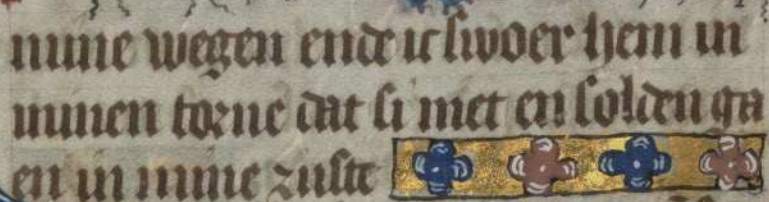 mine wegen ende ic swoer hem in
minen torne dat si niet en solden ga
en in mine ruste